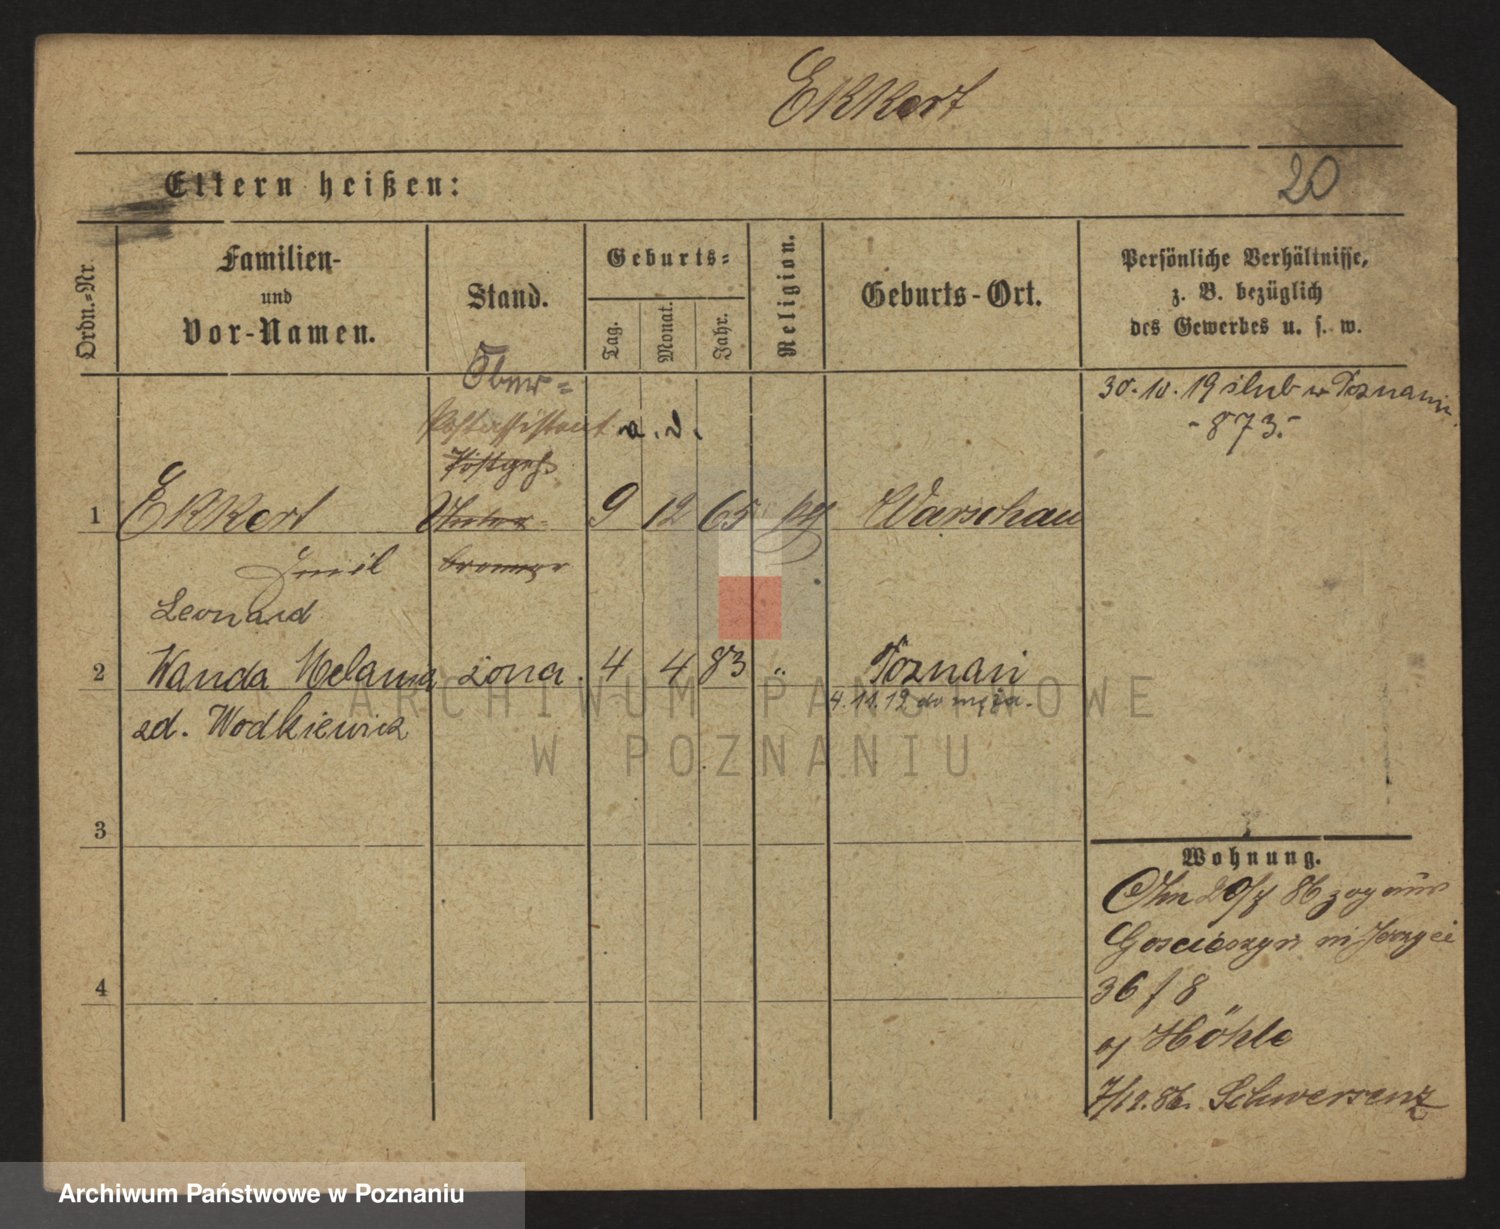 Ekkert
20
Eltern heißen:
Ordn.=Nr.
Familien-
und
Vor-Namen.
Stand.
Geburts=
Tag.
Monat.
Jahr.
Religion.
Geburts-Ort.
Persönliche Verhältnisse,
z. B. bezüglich
des Gewerbes u. s. w.
30.10.19 ślub w Poznaniu
- 873.-
Ober=
Postassistent a. D.
Postgeh.
1 Ekkert 9 12 65 Warschau
Emil
Leonard
2 Wanda Melania żona. 4 4 83 " Poznań
4.11.19 do męża.
zd. Wodkiewicz
3
4
Wohnung.
20/7 86 zog aus
Goscieszyn n Jerzyce
36 f 8
Höhle
7/12.86. Schwersenz
ARCHIWUM PAŃSTWOWE
W POZNANIU
Archiwum Państwowe w Poznaniu